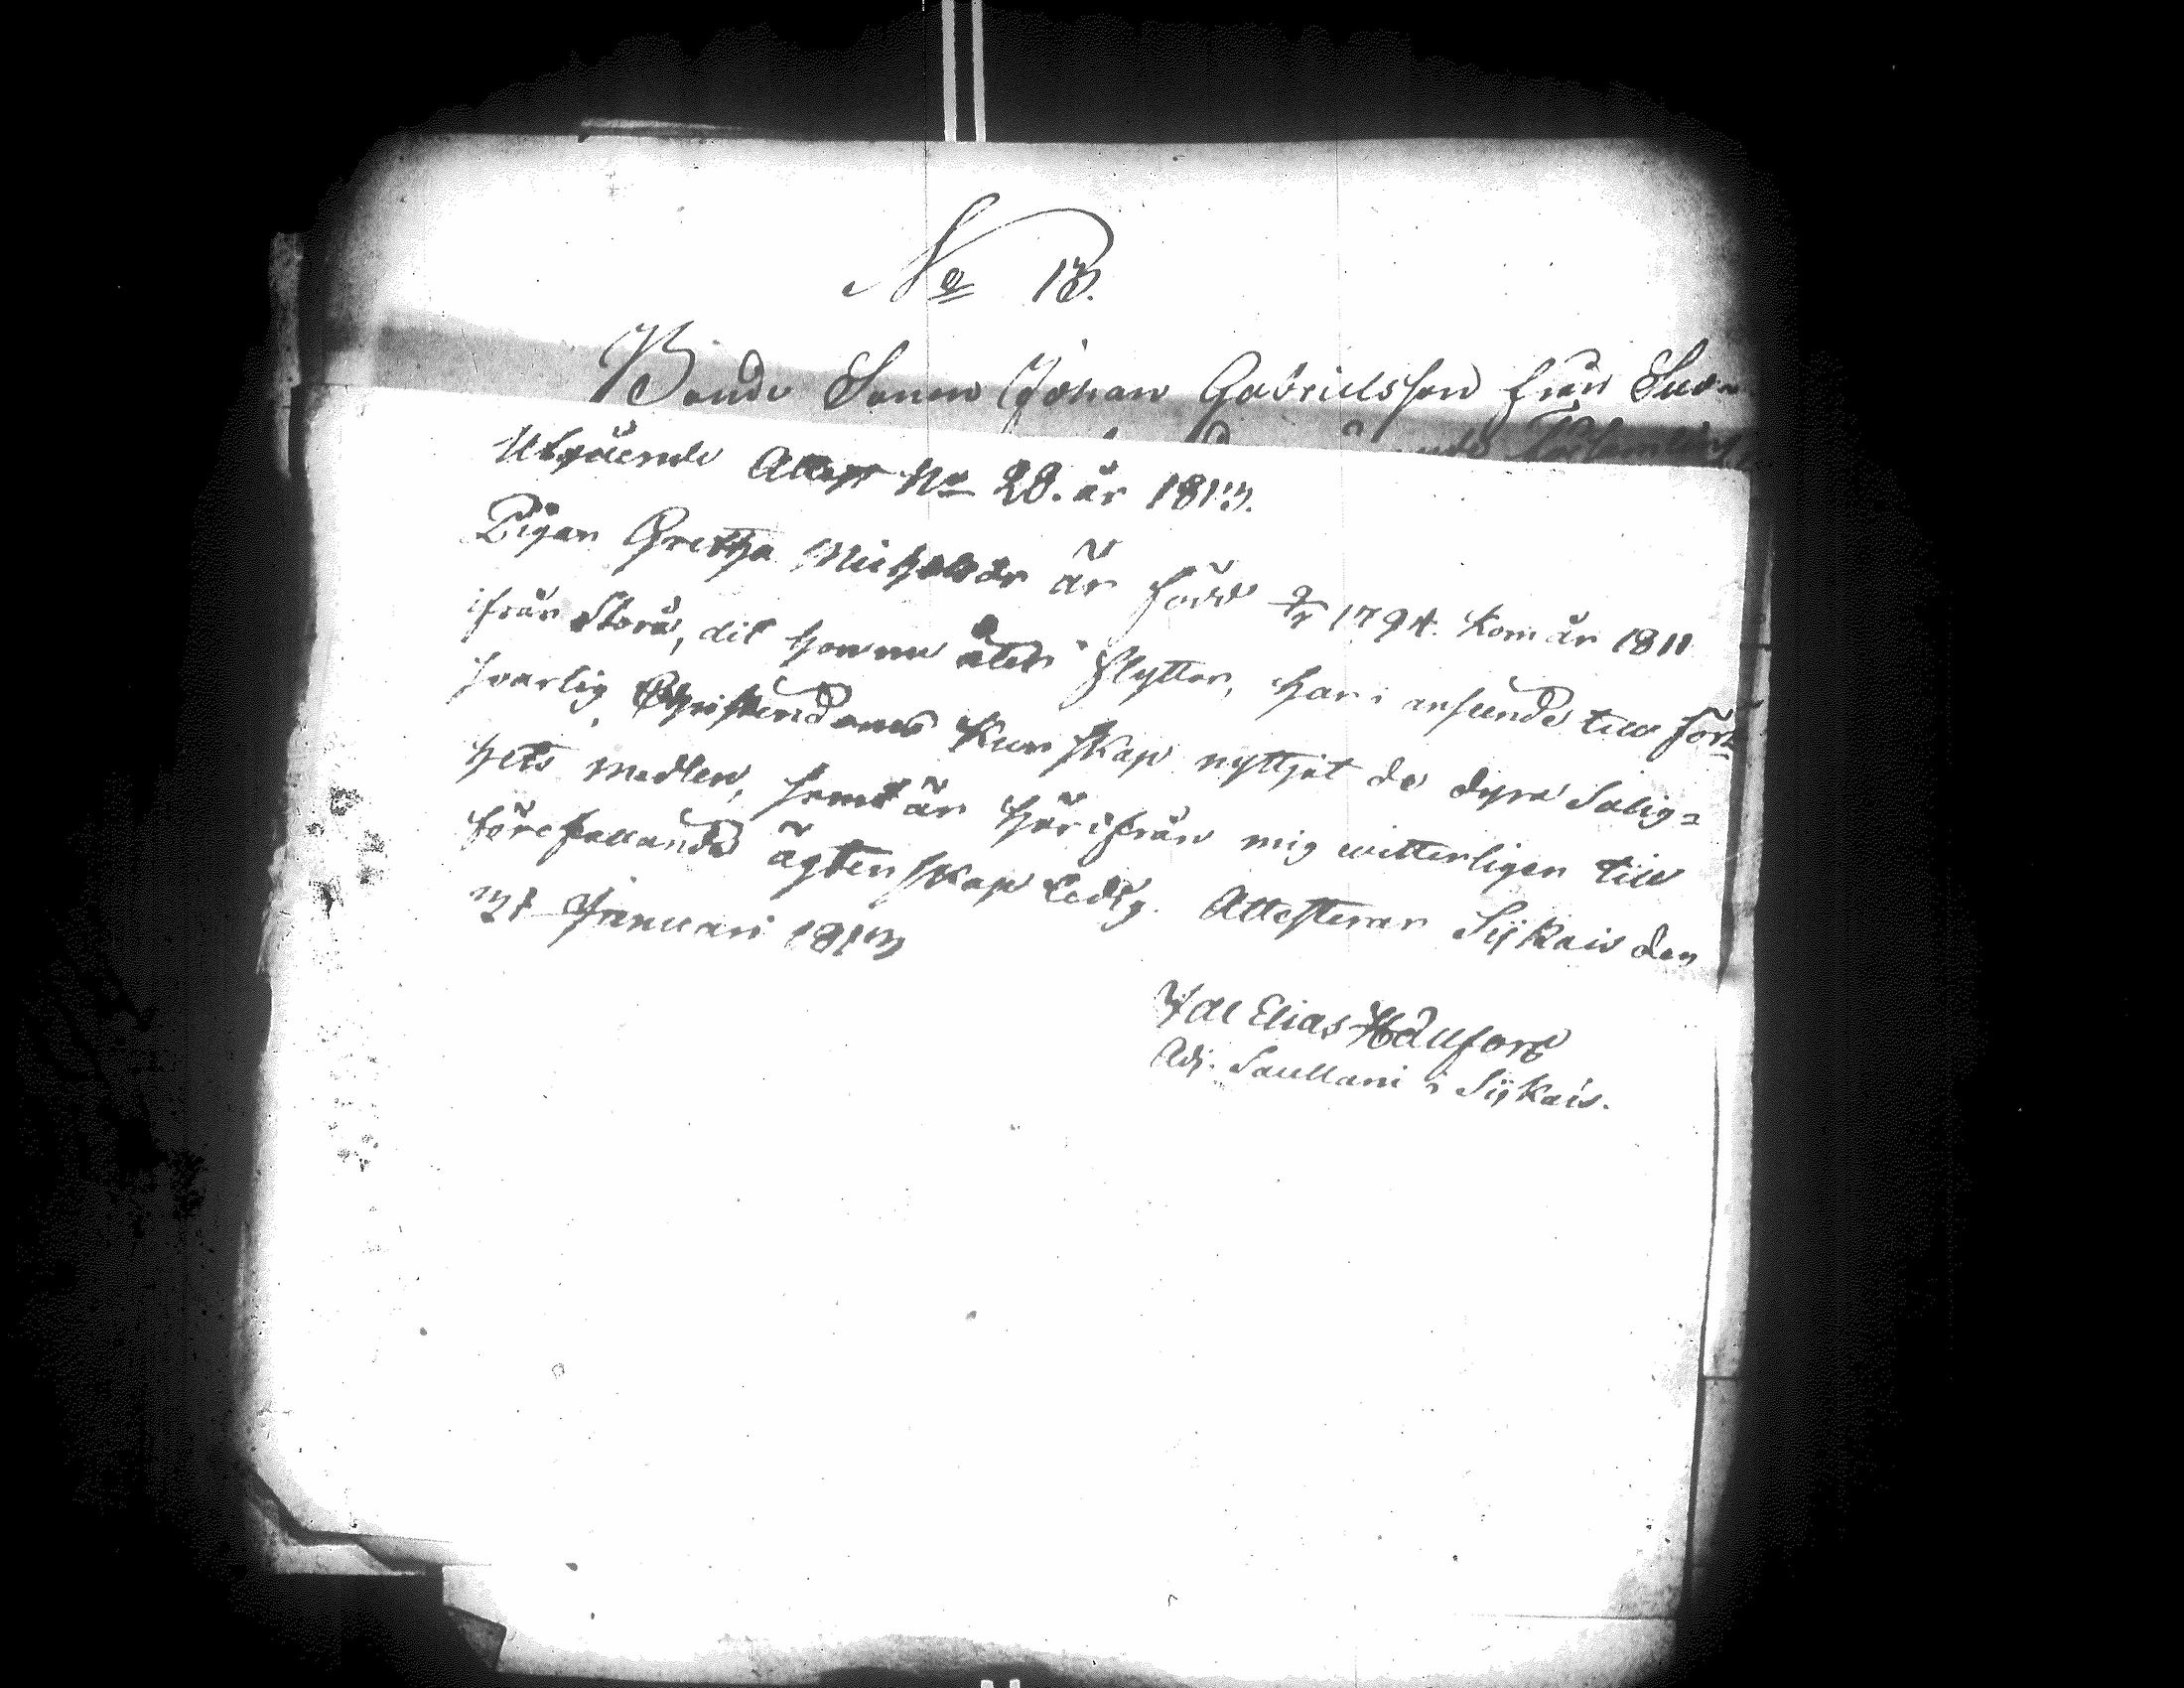 No 13.
Bonde Sonen Johan Gabrielsson från Suo
Utgående Attest No 28. år 1813.
Pigan Gretha Michelsdr är född 9/5 1794. kom år 1811
ifrån Storå, dit hon nu åter flyttar, har i anseende till förs
svarlig Christendoms Kunskap nyttjat de dyra Salig=
hets medlen, samt är härifrån mig witterligen till
förefallande ägtenskap ledig. Attesterar Sijkais den
31 Januari 1813
Elias Hällfors
Adj. Saellani i Sijkais.